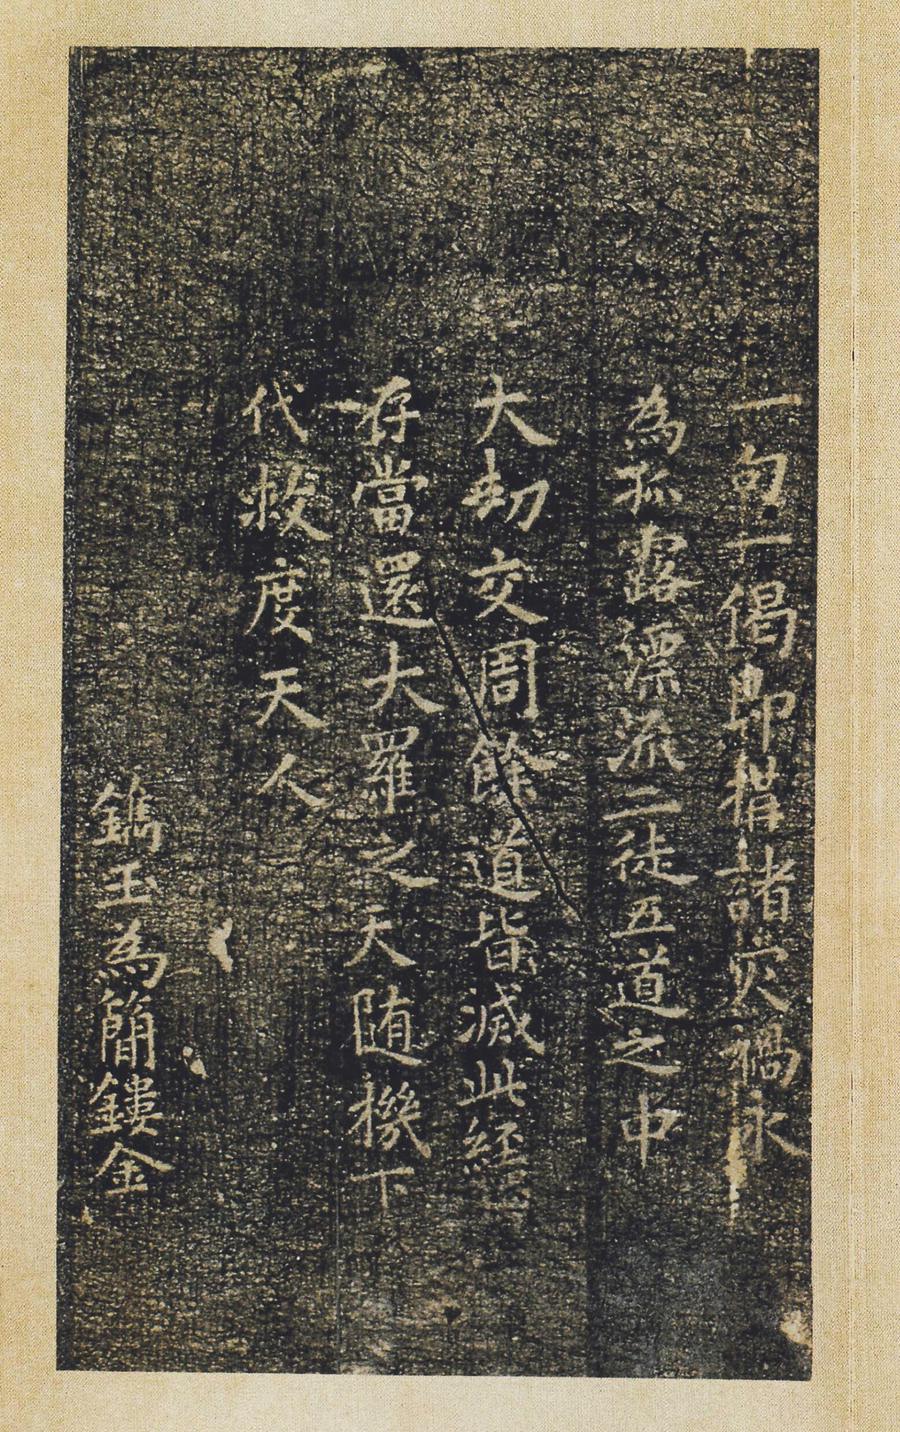 一句一偈即構諸灾禍永
為孤露漂流二徒五道之中
大劫交周餘道皆滅此經
存當還大羅之天随機下
代救度天人
鐫玉為簡鏤金